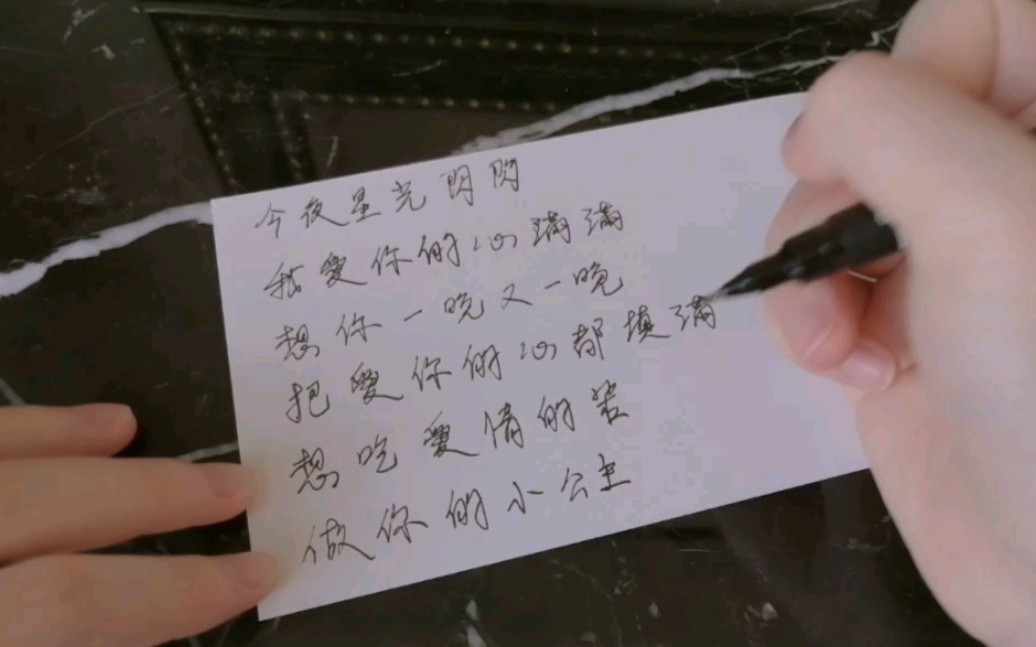 今夜星光閃閃
我愛你的心滿滿
想你一晚又一晚
把愛你的心都填滿
想吃愛情的苦
做你的小公主